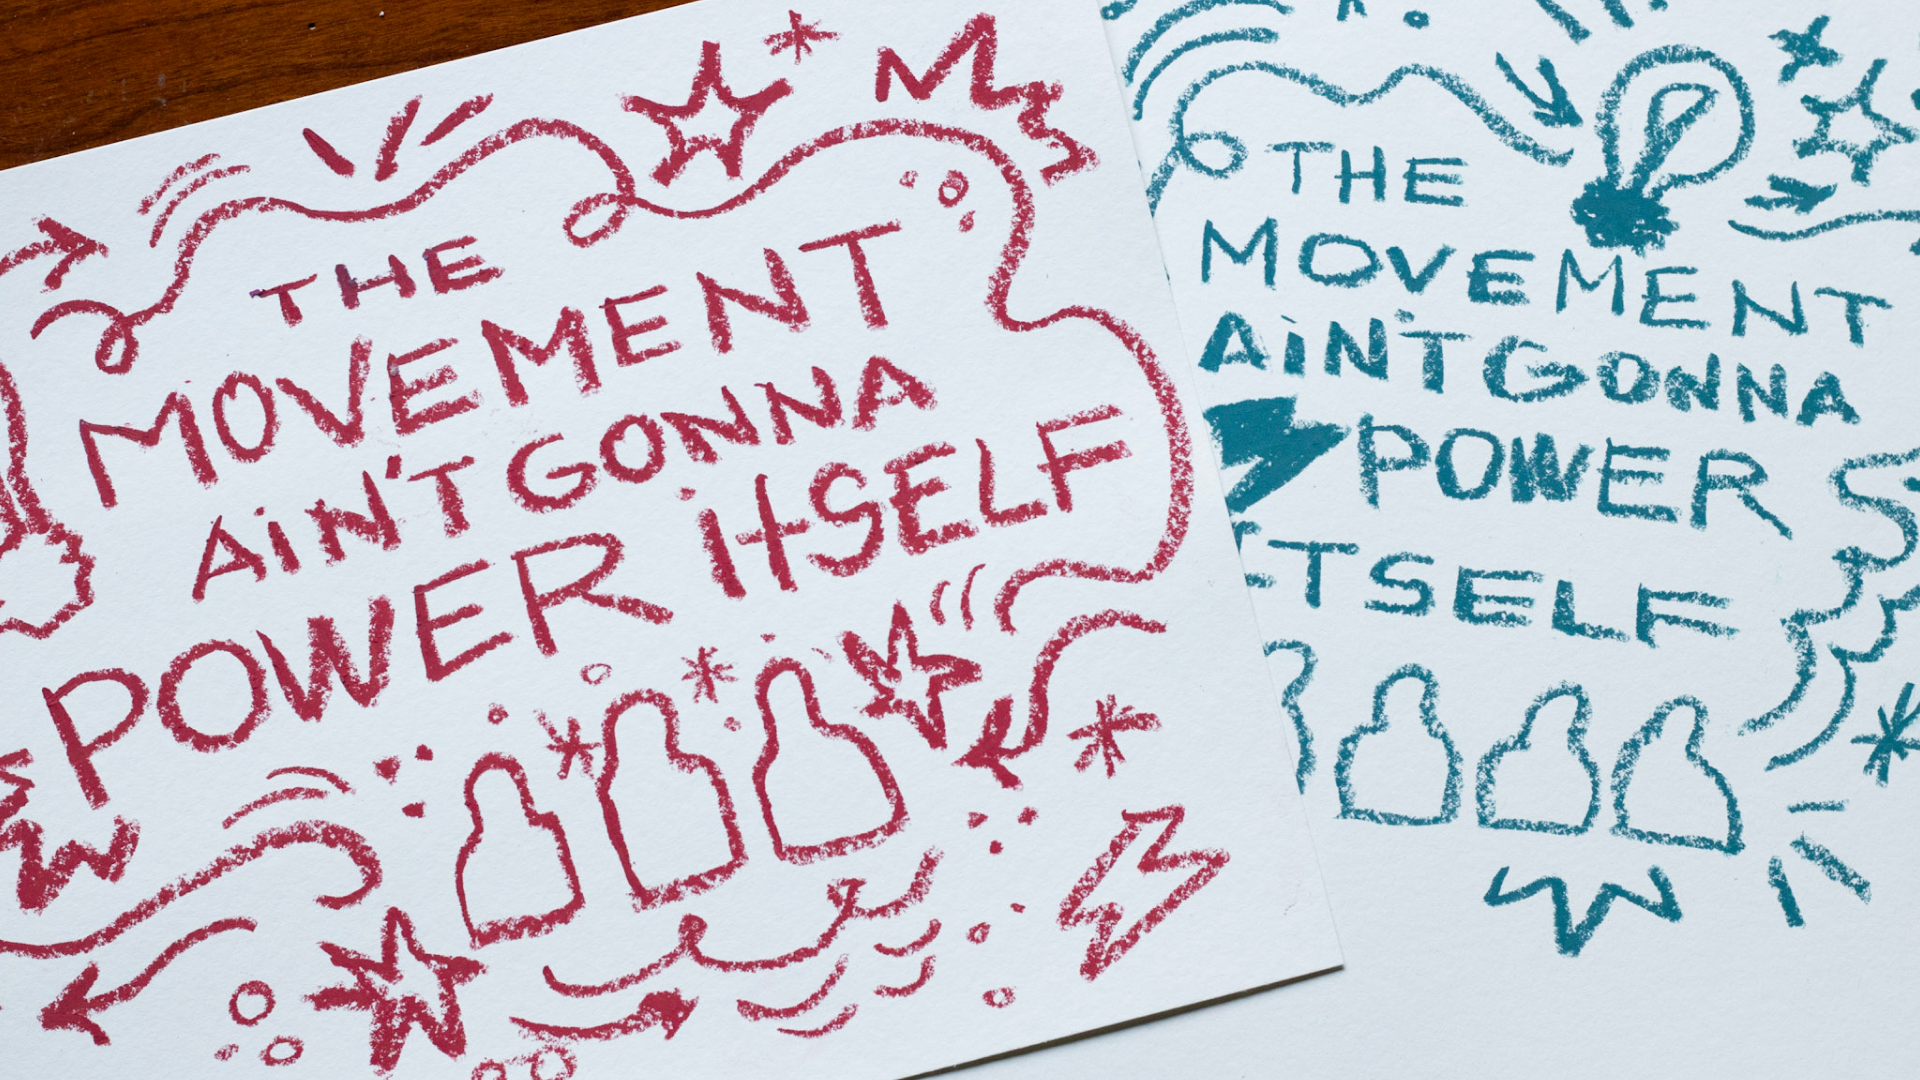 THE
MOVEMENT
AiN'T GONNA
POWER itSELF
THE
MOVEMENT
AiN'T GONNA
POWER
ITSELF